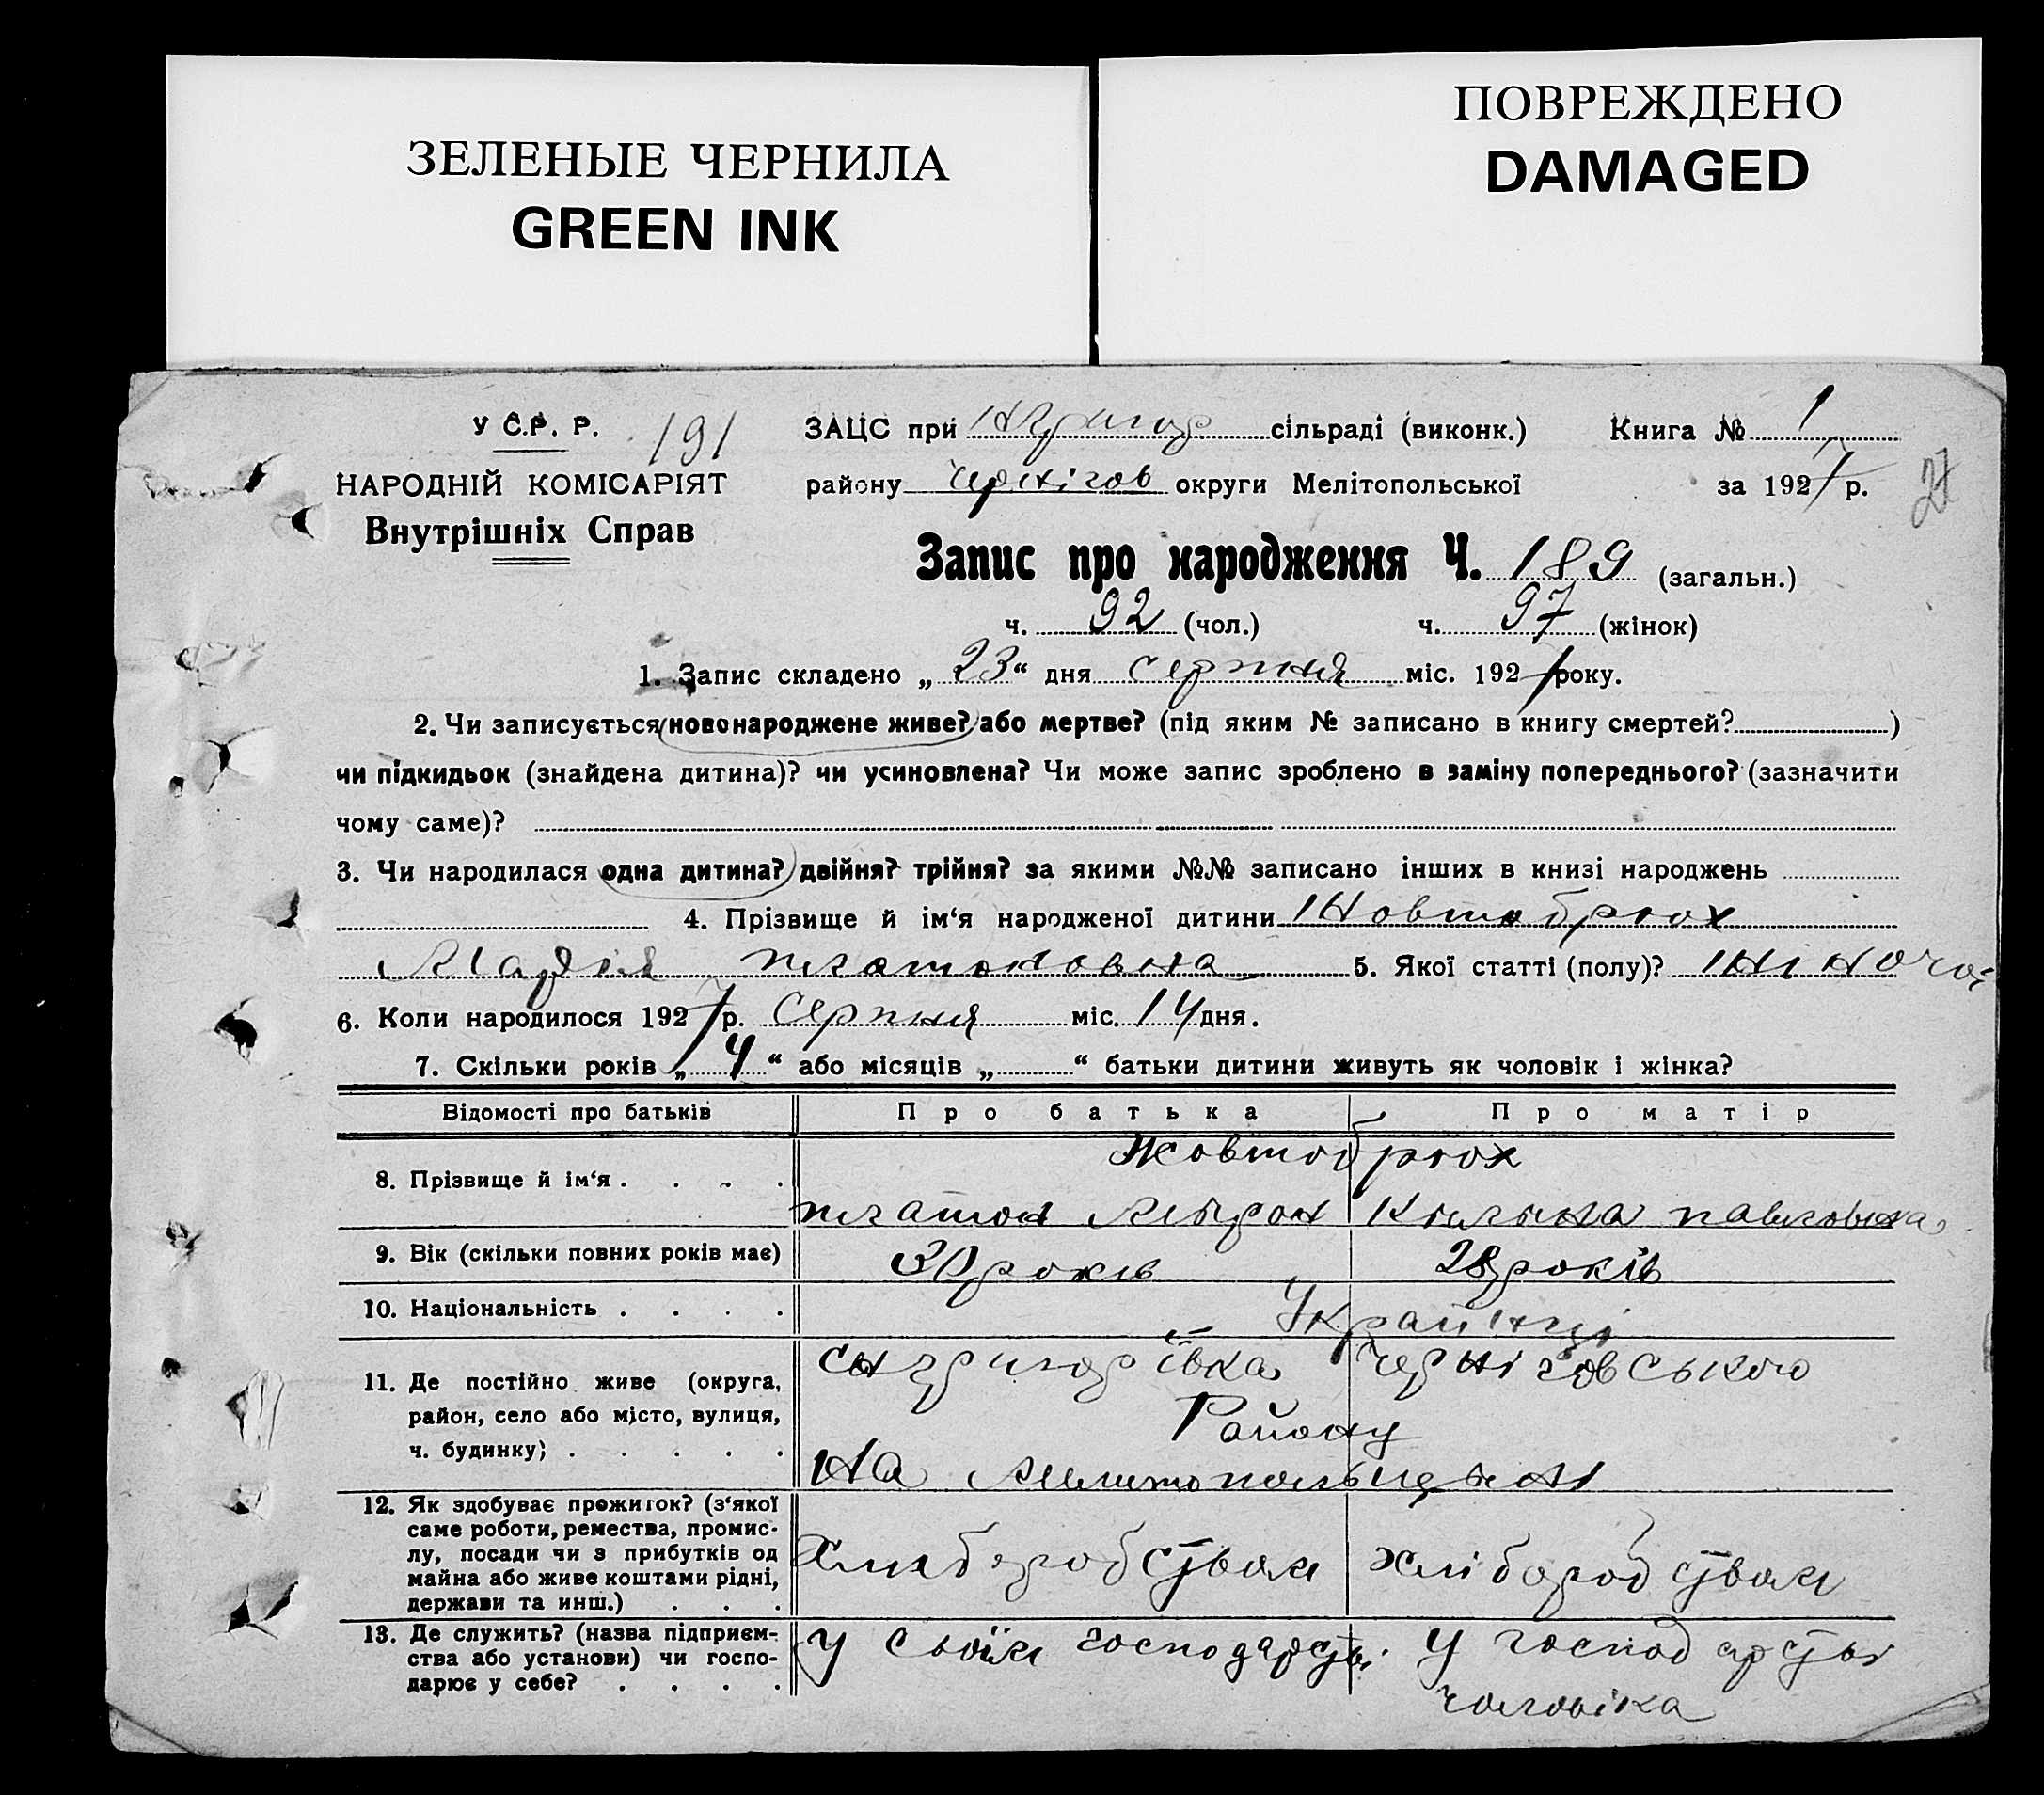 ЗЕЛЕНЫЕ ЧЕРНИЛА
GREEN INK
ПОВРЕЖДЕНО
DAMAGED
У С.Р. Р. 191 ЗАЦС при сільраді (виконк.) Книга № 1
НАРОДНІЙ КОМІСАРІЯТ району Чернігов округи Мелітопольської за 1927 р. 27
Внутрішніх Справ
Запис про народження Ч. 189 (загальн.)
ч. 92 (чол.) ч. 97 (жінок)
1. Запис складено „23“ дня серпня міс. 1927 року.
2. Чи записується новонароджене живе? або мертве? (під яким № записано в книгу смертей?)
чи підкидьок (знайдена дитина)? чи усиновлена? Чи може запис зроблено в заміну попереднього? (зазначити
чому саме)?
3. Чи народилася одна дитина? двійня? трійня? за якими №№ записано інших в книзі народжень
4. Прізвище й ім‘я народженої дитини Жовтобрюх
Марія платоновна 5. Якої статті (полу)? жіночої
6. Коли народилося 1927 р. серпня міс. 14 дня.
7. Скільки років „4“ або місяців „ “ батьки дитини живуть як чоловік і жінка?
Відомості про батьків Про батька Про матір
Жовтобрюх
8. Прізвище й ім‘я . . . .
платон Мирон Килина павловна
9. Вік (скільки повних років має) 30 років 28 років
10. Національність . . . . Українці
11. Де постійно живе (округа, Григорівка Черніговського
район, село або місто, вулиця, Району
ч. будинку) . . . . . на Мелитопольщині
12. Як здобуває прожиток? (з‘якої
саме роботи, ремества, промис-
лу, посади чи з прибутків од хліборобством хліборобством
майна або живе коштами рідні,
держави та инш.) . . .
13. Де служить? (назва підприєм- у своїм господарстві у господарстві
ства або установи) чи госпо-
дарює у себе? . . . . чоловіка